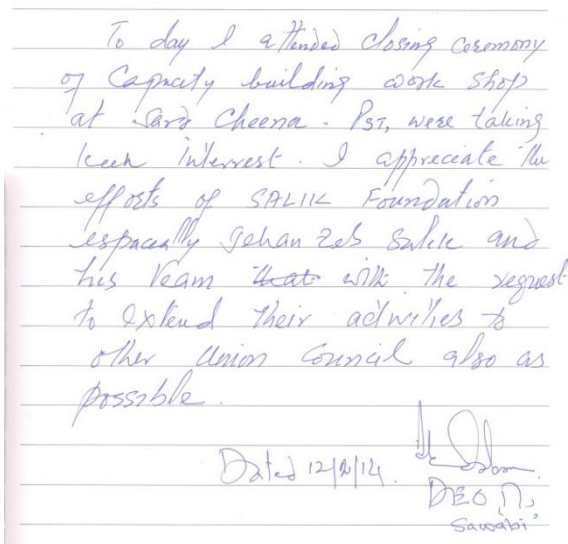 To day I attended closing ceremony
of Capacity building work shop
at Sard Cheena. PST, were taking
keen interrest. I appreciate the
efforts of SALIK Foundation
espacially Jehan zeb Salik and
his team that with the request
to extend their activities to
other Union Council also as
possible.
Dated 12/2/14.
DEO
Sawabi